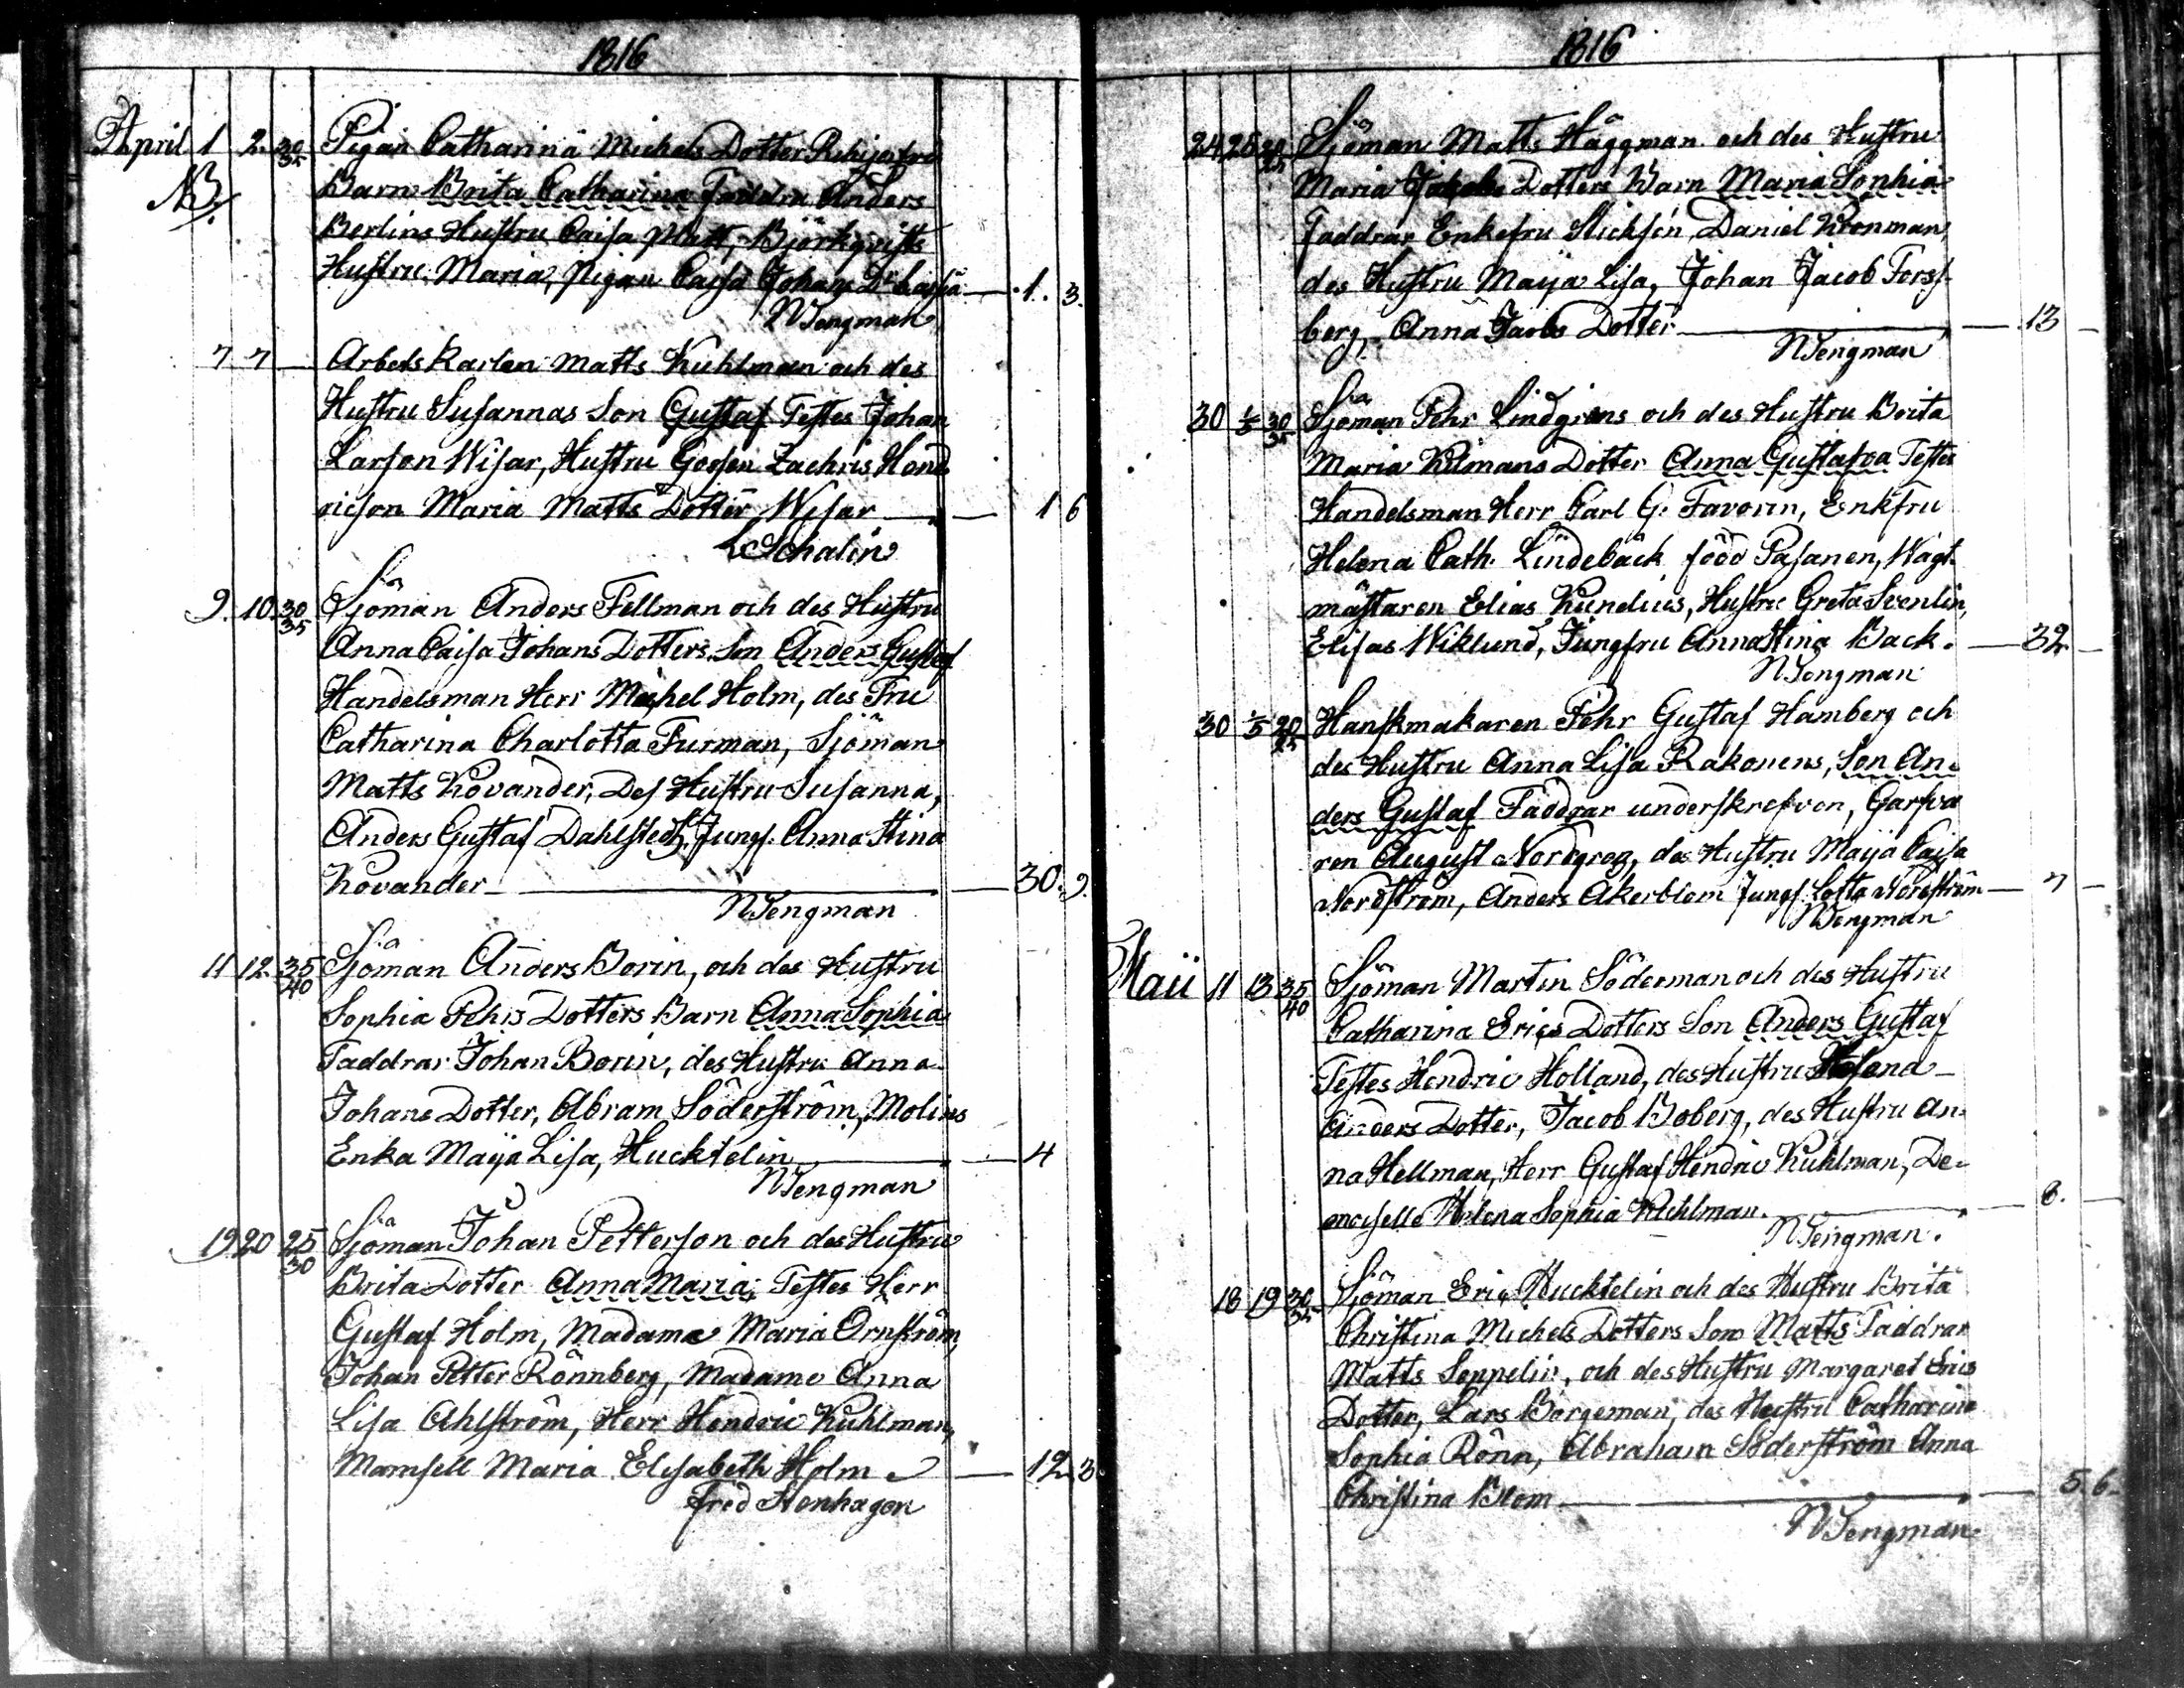 1816
April 1 2. 30/35 Pigan Catharina Michels Dotter
NB. Barn Brita Catharina Faddra Anders
Berlins Hustru Caisa Björkqvists
Hustru Maria, Pigan Caisa Johans Dr — 1. 3.
NTengman
7 7 — Arbets Karlen Matts Kuhlman och des
Hustru Susannas Son Gustaf Testes Johan
Larson Wisar, Hustru Zachris Hend
ricson Maria Matts Dotter Wisar — 1 6
Schalin
9. 10. 30/35 Sjöman Anders Fellman och des Hustru
Anna Caisa Johans Dotters Son Anders Gustaf
Handelsman Herr Michel Holm, des Fru
Catharina Charlotta Furman, Sjöman
Matts Kovander, Des Hustru Susanna,
Anders Gustaf Dahlstedt, Jungf. Anna Stina
Kovander — 30. 9.
NTengman
11 12 35/40 Sjöman Anders Borin, och des Hustru
Sophia Pehrs Dotters Barn Anna Sophia
Faddrar Johan Borin, des Hustru Anna
Johans Dotter, Abram Söderström, Molins
Enka Maija Lisa, Hucktelin — 4
NTengman
19 20 25/30 Sjöman Johan Petterson och des Hustru
Brita Dotter Anna Maria; Testes Herr
Gustaf Holm, Madame Maria Ornström,
Johan Petter Rönnberg, Madame Anna
Lisa Ahlström, Herr Hendric Kuhlman,
Mamsell Maria Elisabeth Holm — 12 3
fred Stenhagen
1816
24 25 Sjöman Matts Häggman och des Hustru
Maria Jakobs Dotters Barn Maria Sophia
Faddrar Enkefru Daniel Kronman,
des Hustru Maija Lisa, Johan Jacob Forss
berg, Anna Jacobs Dotter — 13 —
NTengman
30 1/5 30/35 Sjöman Pehr Lindgrens och des Hustru Brita
Maria Kilmans Dotter Anna Gustafva Testes
Handelsman Herr Carl G. Favorin, Enkfru
Helena Cath. Lindebäck född Pasanen, Wagt-
mästaren Elias Kunelius, Hustru Greta Svenlin,
Elisas Wiklund, Jungfru Anna Stina Back. — 32 —
NTengman
30 1/5 20/25 Hanskmakaren Pehr Gustaf Hamberg och
des Hustru Anna Lisa Rakonens, Son An-
ders Gustaf Faddrar underskrefven, Garfva
ren August Nordgren, des Hustru Maija Caisa
Nordström, Anders Åkerblom Jungf. Lotta Nordström — 7 —
NTengman
Maii 11 13 35/40 Sjöman Martin Söderman och des Hustru
Catharina Erics Dotters Son Anders Gustaf
Testes Hendric Holland, des Hustru Helena
Anders Dotter, Jacob Boberg, des Hustru An-
na Hellman, Herr Gustaf Hendric Kuhlman, De-
moiselle Helena Sophia Kuhlman. — 8. —
NTengman.
18 19 30/35 Sjöman Eric Hucktelin och des Hustru Brita
Christina Michels Dotters Son Matts Faddrar
Matts Seppelin, och des Hustru Margaret Erics
Dotter, Lars Börgeman, des Hustru Catharina
Sophia Rönn, Abraham Söderström Anna
Christina Blom — 5 6
NTengman